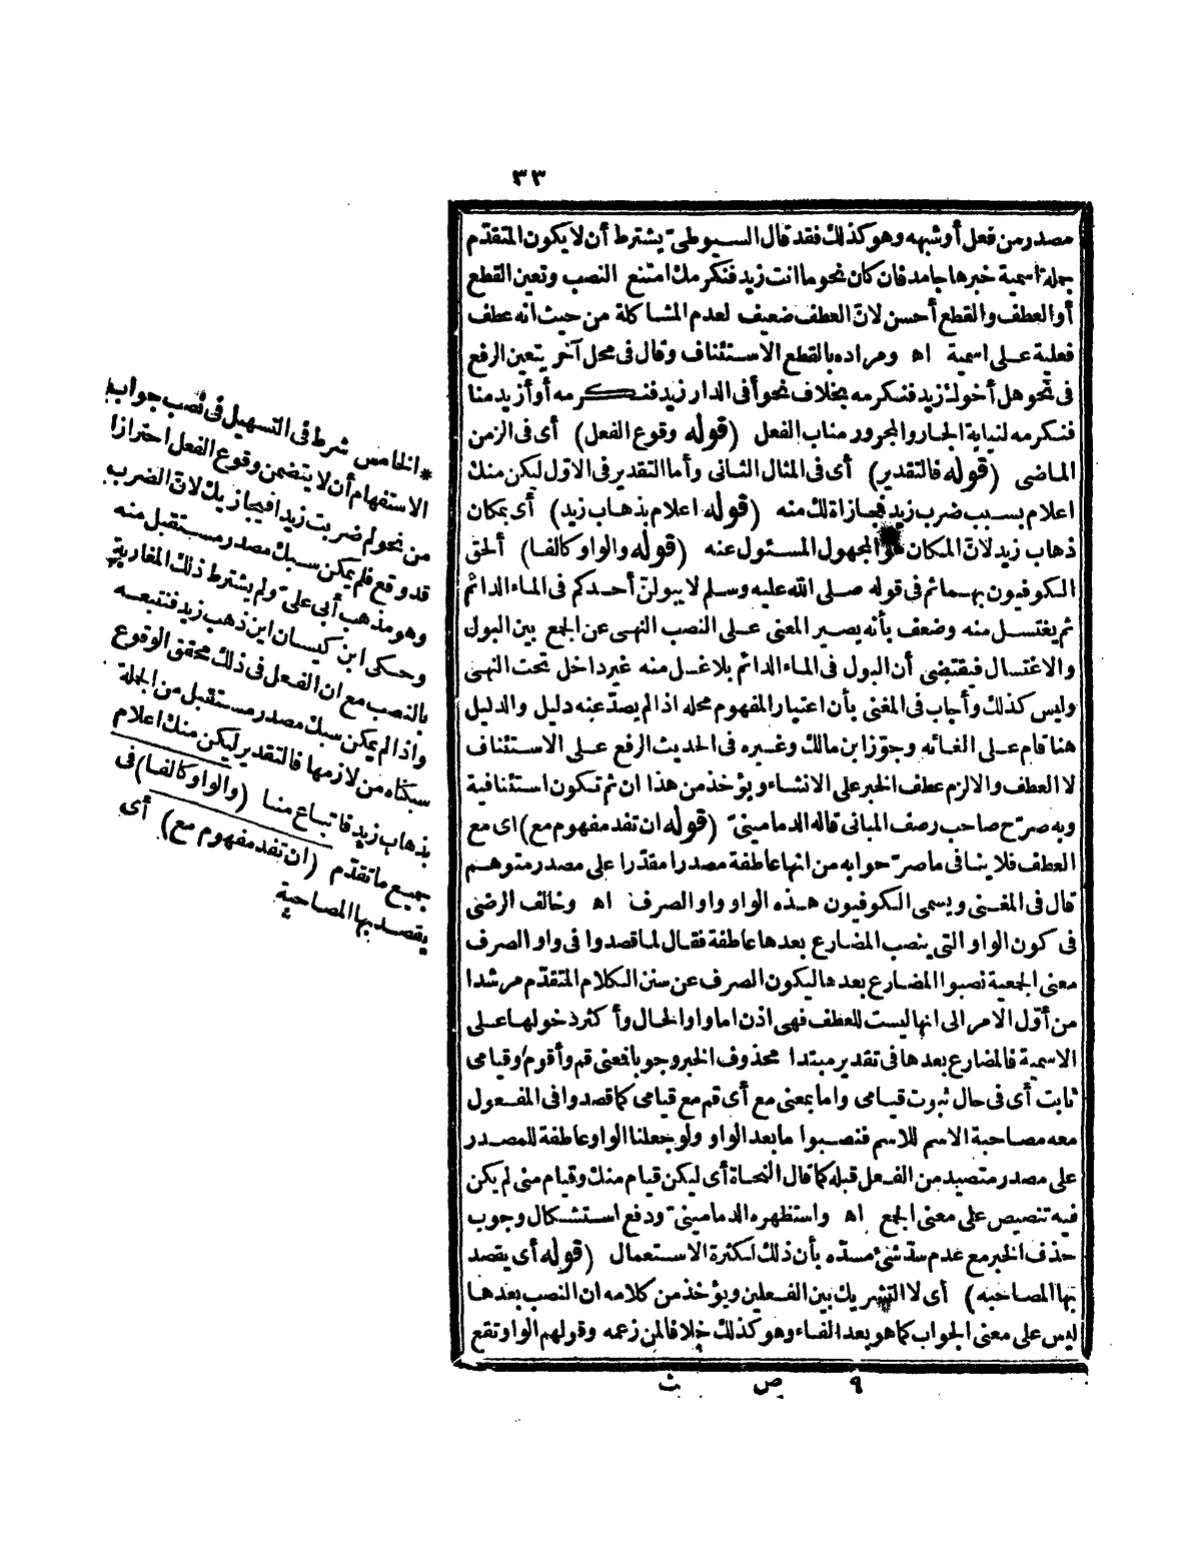 ٣٣
مصدر من فعل أو شبهه وهو كذلك فقد قال السيوطى يشترط أن لا يكون المتقدّم
جملة اسمية خبرها جامد فان كان نحو ما انت زيد فنكرمك امتنع النصب وتعين القطع
أو العطف والقطع أحسن لانّ العطف ضعيف لعدم المشاكلة من حيث انه عطف
فعلية على اسمية اه ومراده بالقطع الاستئناف وقال فى محل آخر يتعين الرفع
فى نحو هل أخوك زيد فنكرمه بخلاف نحو أفى الدار زيد فنكرمه أو أزيد منا
فنكرمه لنيابة الجار والمجرور مناب الفعل (قوله وقوع الفعل) أى فى الزمن
الماضى (قوله فالتقدير) أى فى المثال الثانى وأما التقدير فى الاوّل ليكن منك
اعلام بسبب ضرب زيد فمجازاة لك منه (قوله اعلام بذهاب زيد) أى بمكان
ذهاب زيد لانّ المكان هو المجهول المسئول عنه (قوله والواو كالفا) ألحق
الكوفيون بهما ثم فى قوله صلى الله عليه وسلم لا يبولنّ أحدكم فى الماء الدائم
ثم يغتسل منه وضعف بأنه يصير المعنى على النصب النهى عن الجمع بين البول
والاغتسال فيقتضى أن البول فى الماء الدائم بلا غسل منه غير داخل تحت النهى
وليس كذلك وأجاب فى المغنى بأن اعتبار المفهوم محله اذا لم يصدّ عنه دليل والدليل
هنا قام على الغائه وجوّز ابن مالك وغيره فى الحديث الرفع على الاستئناف
لا العطف والا لزم عطف الخبر على الانشاء ويؤخذ من هذا ان ثم تكون استئنافية
وبه صرّح صاحب رصف المبانى قاله الدمامينىّ (قوله ان تفد مفهوم مع) اى مع
العطف فلا ينافى ما صرّحوا به من انها عاطفة مصدرا مقدّرا على مصدر متوهم
قال فى المغنى ويسمى الكوفيون هذه الواو واو الصرف اه وخالف الرضى
فى كون الواو التى ينصب المضارع بعدها عاطفة فقال لما قصدوا فى واو الصرف
معنى الجمعية نصبوا المضارع بعدها ليكون الصرف عن سنن الكلام المتقدّم مرشدا
من أوّل الامر الى انها ليست للعطف فهى اذن اما واو الحال وأكثر دخولها على
الاسمية فالمضارع بعدها فى تقدير مبتدا محذوف الخبر وجوبا فمعنى قم وأقوم وقيامى
ثابت أى فى حال ثبوت قيامى واما بمعنى مع أى قم مع قيامى كما قصدوا فى المفعول
معه مصاحبة الاسم للاسم فنصبوا ما بعد الواو ولو جعلنا الواو عاطفة للمصدر
على مصدر متصيد من الفعل قبله كما قال النحاة أى ليكن قيام منك وقيام منى لم يكن
فيه تنصيص على معنى الجمع اه واستظهره الدمامينىّ ودفع استشكال وجوب
حذف الخبر مع عدم سدّ شئ مسدّه بأن ذلك لكثرة الاستعمال (قوله أى يقصد
بها المصاحبة) أى لا التشريك بين الفعلين ويؤخذ من كلامه ان النصب بعدها
ليس على معنى الجواب كما هو بعد الفاء وهو كذلك خلافا لمن زعمه وقولهم الواو تقع
٩ ص ث
*الخامس شرط فى التسهيل فى نصب جواب
الاستفهام أن لا يتضمن وقوع الفعل احترازا
من نحو لم ضربت زيدا فيجازيك لانّ الضرب
قد وقع فلم يمكن سبك مصدر مستقبل منه
وهو مذهب أبى علىّ ولم يشترط ذلك المغاربة
وحكى ابن كيسان اين ذهب زيد فنتبعه
بالنصب مع ان الفعل فى ذلك محقق الوقوع
واذا لم يمكن سبك مصدر مستقبل من الجملة
سبكناه من لازمها فالتقدير ليكن منك اعلام
بذهاب زيد فاتباع منا (والواو كالفا) فى
جميع ما تقدّم (ان تفد مفهوم مع) أى
يقصد بها المصاحبة